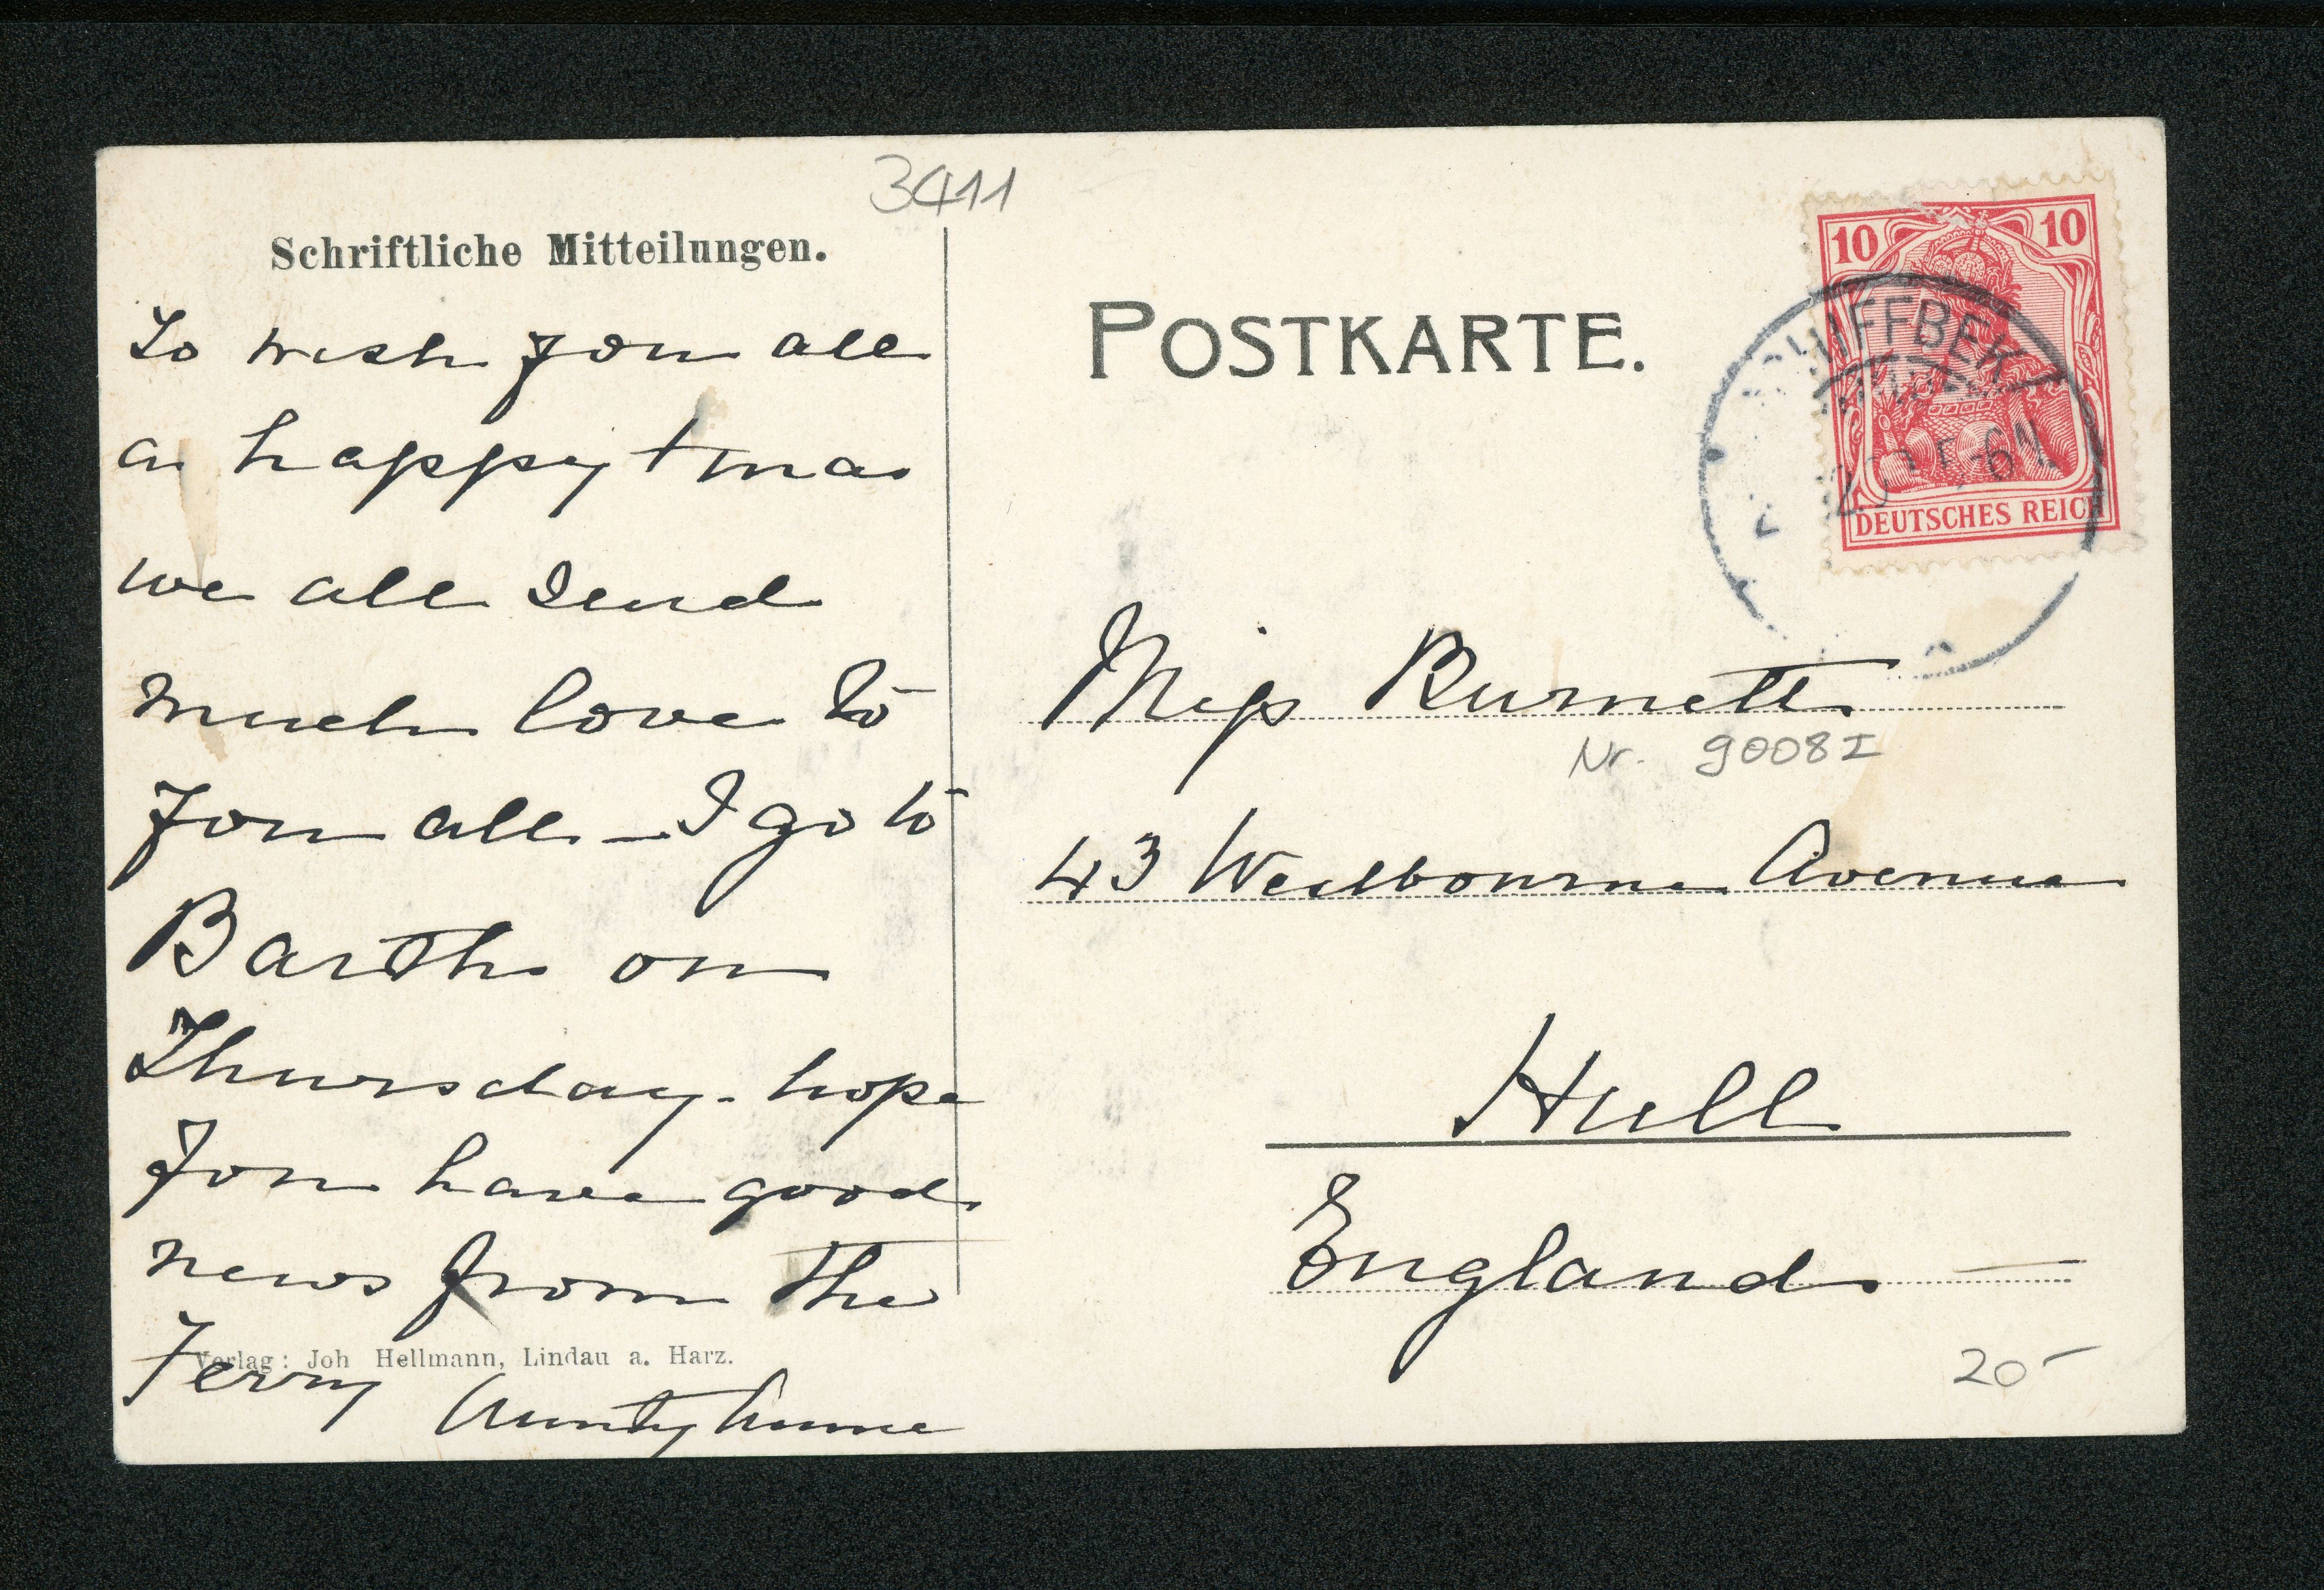 3411
Schriftliche Mitteilungen.
To wish you all
a happy Xmas
we all send
much love to
you all – I go to
Barth on
Thursday – hope
you have good
news from the
Ferry Aunty Annie
Verlag: Joh Hellmann, Lindau a. Harz.
POSTKARTE.
10 10
DEUTSCHES REICH
SCHIFFBEK
5-6N
Miss Burnett
Nr. 9008 I
43 Westbourne Avenue
Hull
England
20-